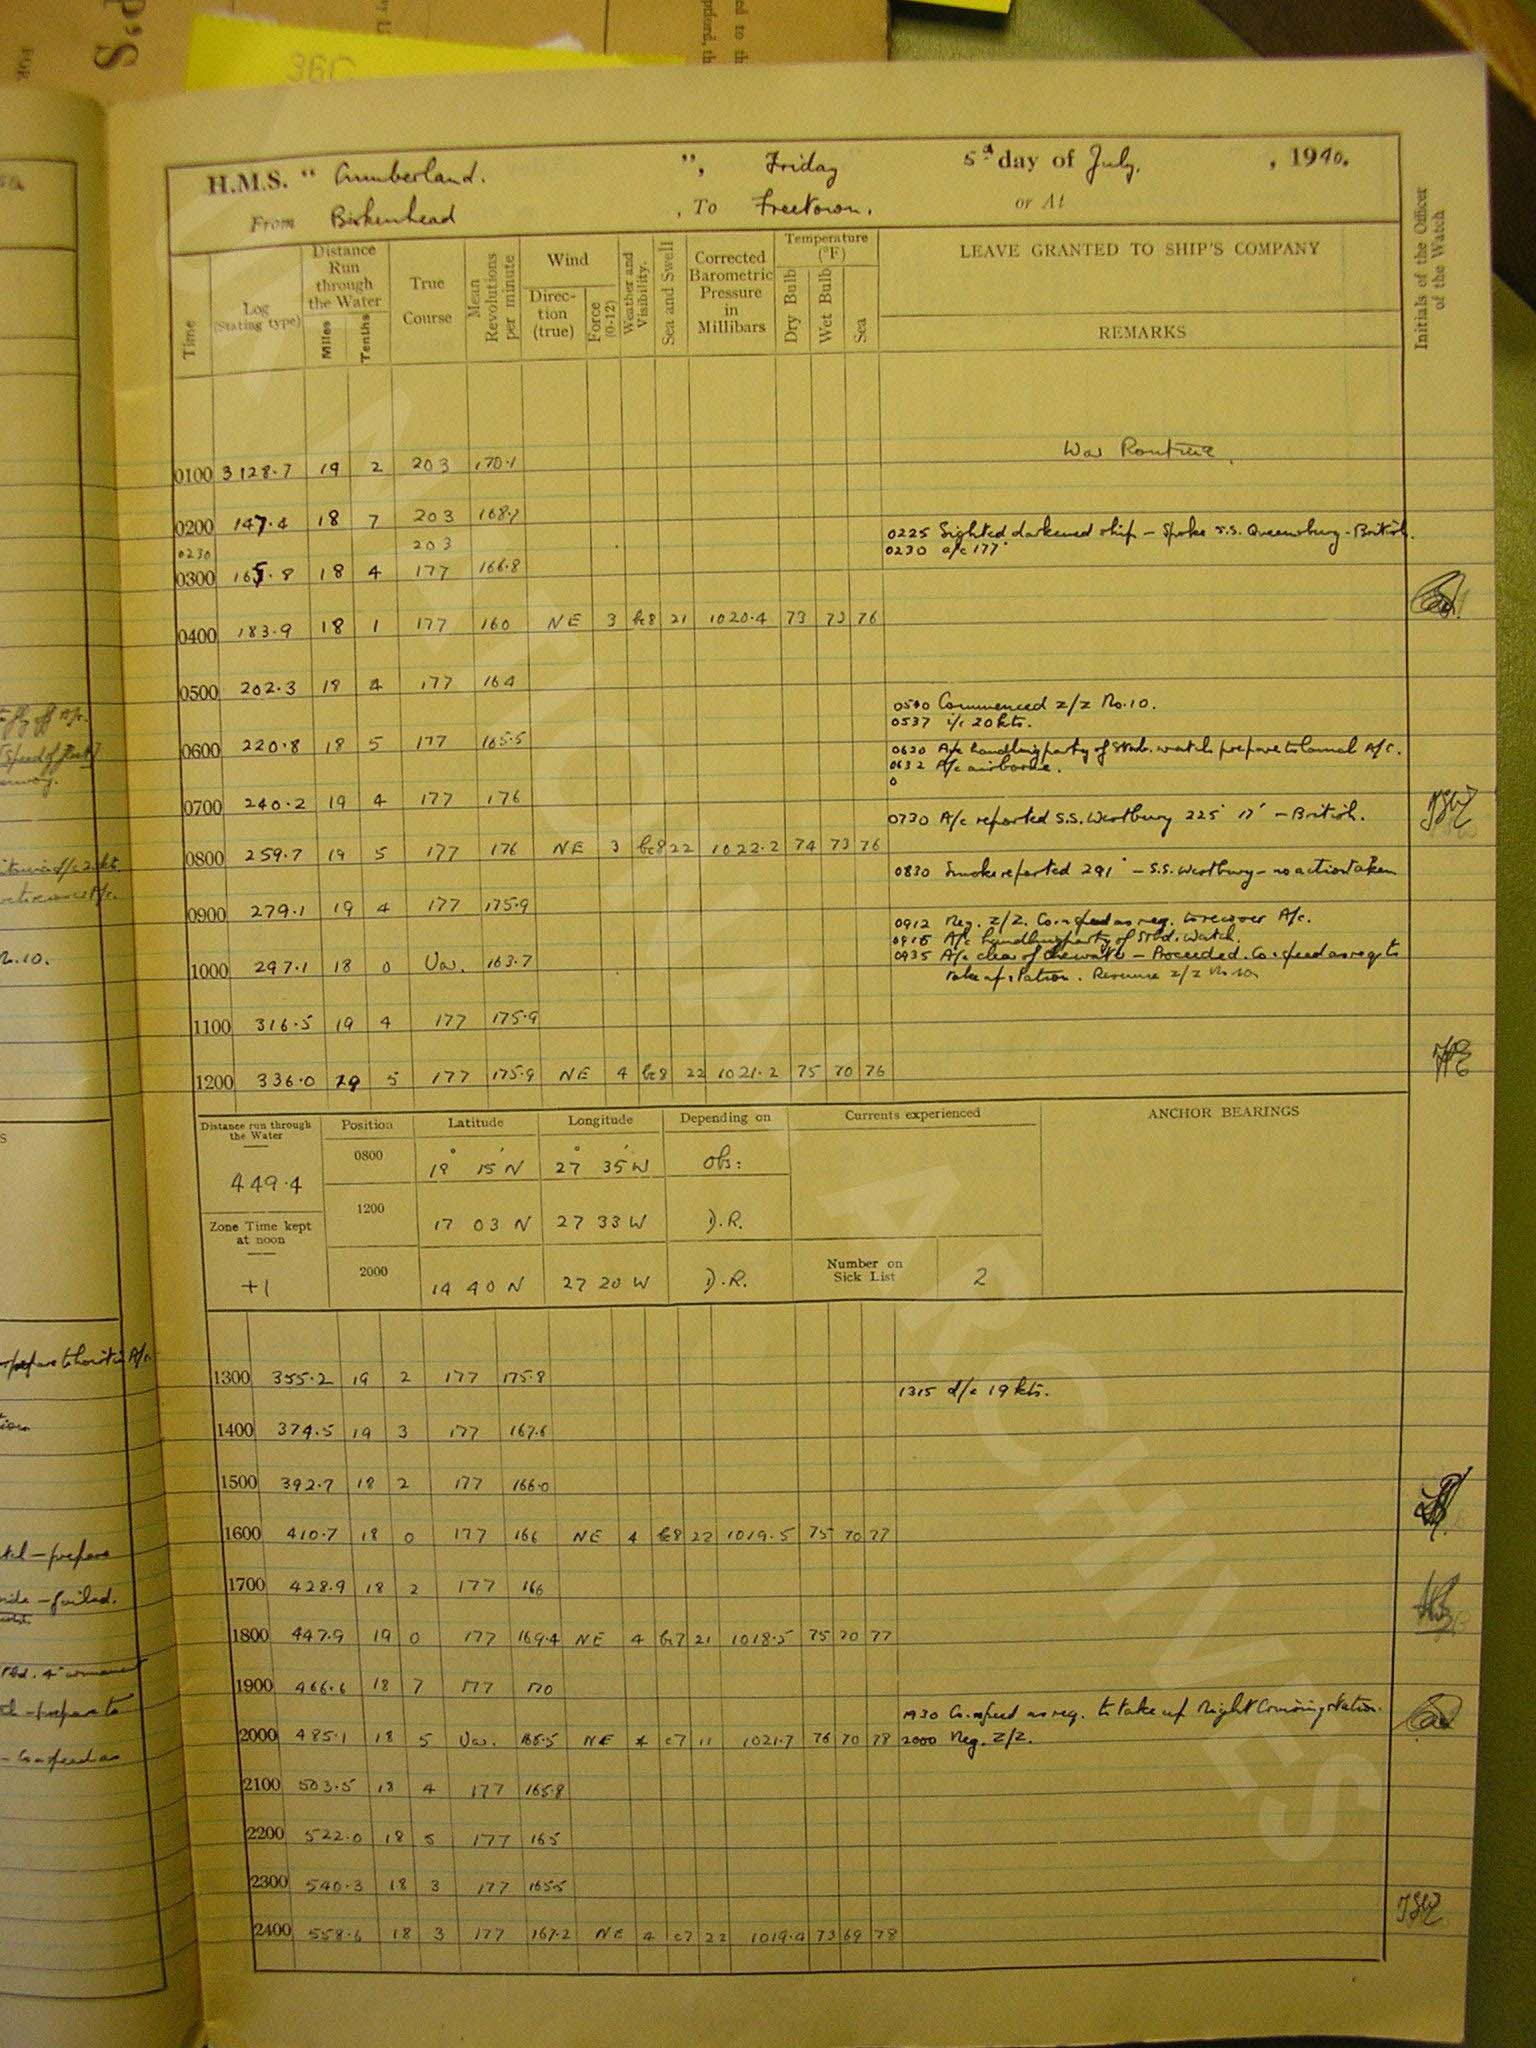 S'd
FOR
36C
H.M.S. " Cumberland. ", Friday 5th day of July, , 1940.
From Birkenhead , To Freetown. or At
Time
Log (Stating type)
Distance Run through the Water
Miles Tenths
True Course
Mean Revolutions per minute
Wind
Direction (true)
Force (0-12)
Weather and Visibility.
Sea and Swell
Corrected Barometric Pressure in Millibars
Temperature (°F)
Dry Bulb Wet Bulb Sea
LEAVE GRANTED TO SHIP'S COMPANY
REMARKS
Initials of the Officer of the Watch
War Routine.
0100 3128.7 19 2 203 170.1
0200 147.4 18 7 203 168.7
0225 Sighted darkened ship - Spoke S.S. Queensbury - British.
0230 203
0230 a/c 177°
0300 165.8 18 4 177 166.8
0400 183.9 18 1 177 160 NE 3 bc8 21 1020.4 73 73 76
0500 202.3 18 4 177 164
0500 Commenced z/z No. 10.
0537 i/c 20 kts.
0600 220.8 18 5 177 165.5
0620 A/c handling party of Stbd. watch prepare to launch A/c.
0632 A/c airborne.
0
0700 240.2 19 4 177 176
0730 A/c reported S.S. Westbury 225° 17' - British.
0800 259.7 19 5 177 176 NE 3 bc8 22 1022.2 74 73 76
0830 Smoke reported 291° - S.S. Westbury - no action taken
0900 279.1 19 4 177 175.9
0912 Neg. z/z. Co. + speed as req. to recover A/c.
0915 A/c handling party of Stbd. Watch.
0935 A/c clear of the water - Proceeded. Co. + speed as req. to
take up station. Resume z/z No 10
1000 297.1 18 0 Var. 163.7
1100 316.5 19 4 177 175.9
1200 336.0 19 5 177 175.9 NE 4 bc8 22 1021.2 75 70 76
Distance run through the Water
449.4
Zone Time kept at noon
+1
Position Latitude Longitude Depending on Currents experienced ANCHOR BEARINGS
0800 18° 15' N 27° 35' W Obs:
1200 17 03 N 27 33 W D.R.
2000 14 40 N 27 20 W D.R.
Number on Sick List 2
1300 355.2 19 2 177 175.8
1315 d/c 19 kts.
1400 374.5 19 3 177 167.6
1500 392.7 18 2 177 166.0
1600 410.7 18 0 177 166 NE 4 bc8 22 1019.5 75 70 77
1700 428.9 18 2 177 166
1800 447.9 19 0 177 169.4 NE 4 bc7 21 1018.5 75 70 77
1900 466.6 18 7 177 170
1930 Co. + speed as req. to take up Night Cruising station.
2000 485.1 18 5 Var. 165.5 NE 4 c7 11 1021.7 76 70 78
2000 Neg. z/z.
2100 503.5 18 4 177 165.8
2200 522.0 18 5 177 165
2300 540.3 18 3 177 165.5
2400 558.6 18 3 177 167.2 NE 4 c7 22 1019.4 73 69 78
No. 10.
prepare to hoist in A/c.
prepare
failed.
prepare to
Co + speed as
NATIONAL ARCHIVES